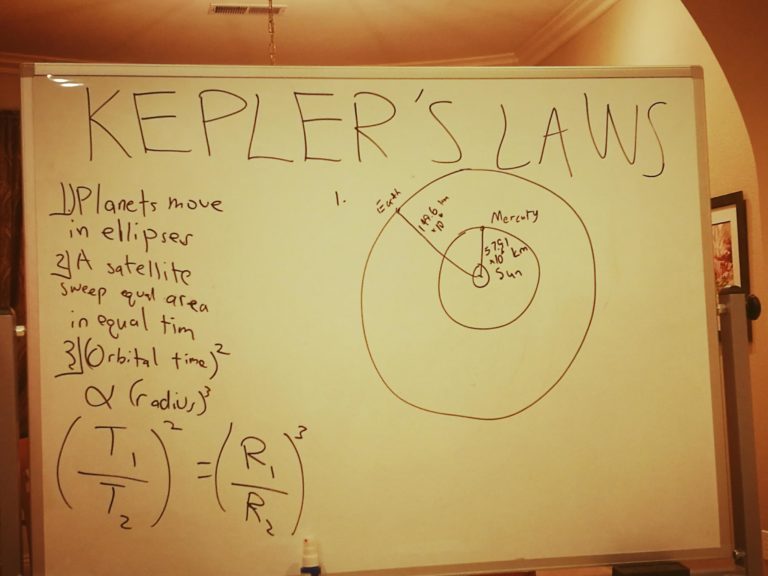 KEPLER'S LAWS
1) Planets move
in ellipses
2) A satellite
sweep equal area
in equal tim
3) (Orbital time)²
α (radius)³
(T₁/T₂)² = (R₁/R₂)³
1.
Earth
149.6 km
Mercury
km
Sun